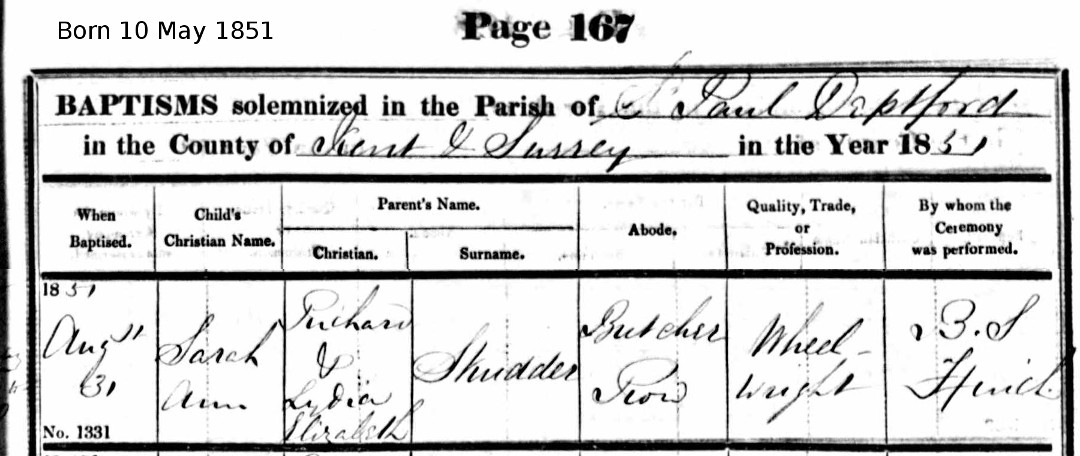 Born 10 May 1851
Page 167
BAPTISMS solemnized in the Parish of St Paul Deptford
in the County of Kent & Surrey in the Year 1851
When Baptised.
Child's Christian Name.
Parent's Name.
Christian.
Surname.
Abode.
Quality, Trade, or Profession.
By whom the Ceremony was performed.
1851
Augst 31
Sarah Ann
Richard & Lydia Elizabeth
Skudder
Butcher Row
Wheel-wright
B. S Finch
No. 1331